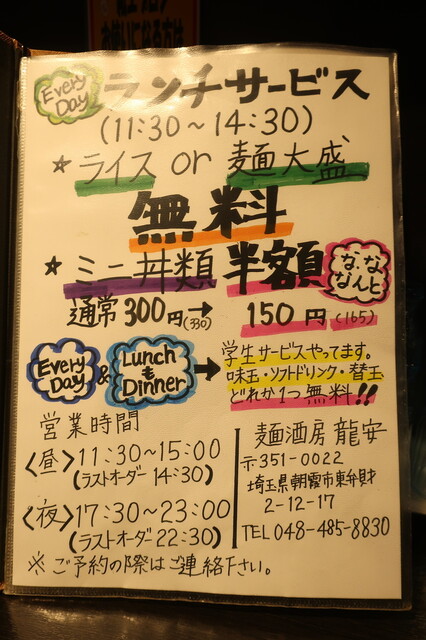 Every Day ランチサービス
(11:30～14:30)
★ライス or 麺大盛
無料
★ミニ丼類 半額 な・な なんと
通常300円(330)→150円(165)
Every Day & Lunch も Dinner → 学生サービスやってます。
味玉・ソフトドリンク・替玉
どれか1つ無料!!
営業時間
〈昼〉11:30～15:00
(ラストオーダー 14:30)
〈夜〉17:30～23:00
(ラストオーダー 22:30)
※ご予約の際はご連絡下さい。
麺酒房 龍安
〒351-0022
埼玉県朝霞市東弁財
2-12-17
TEL 048-485-8830